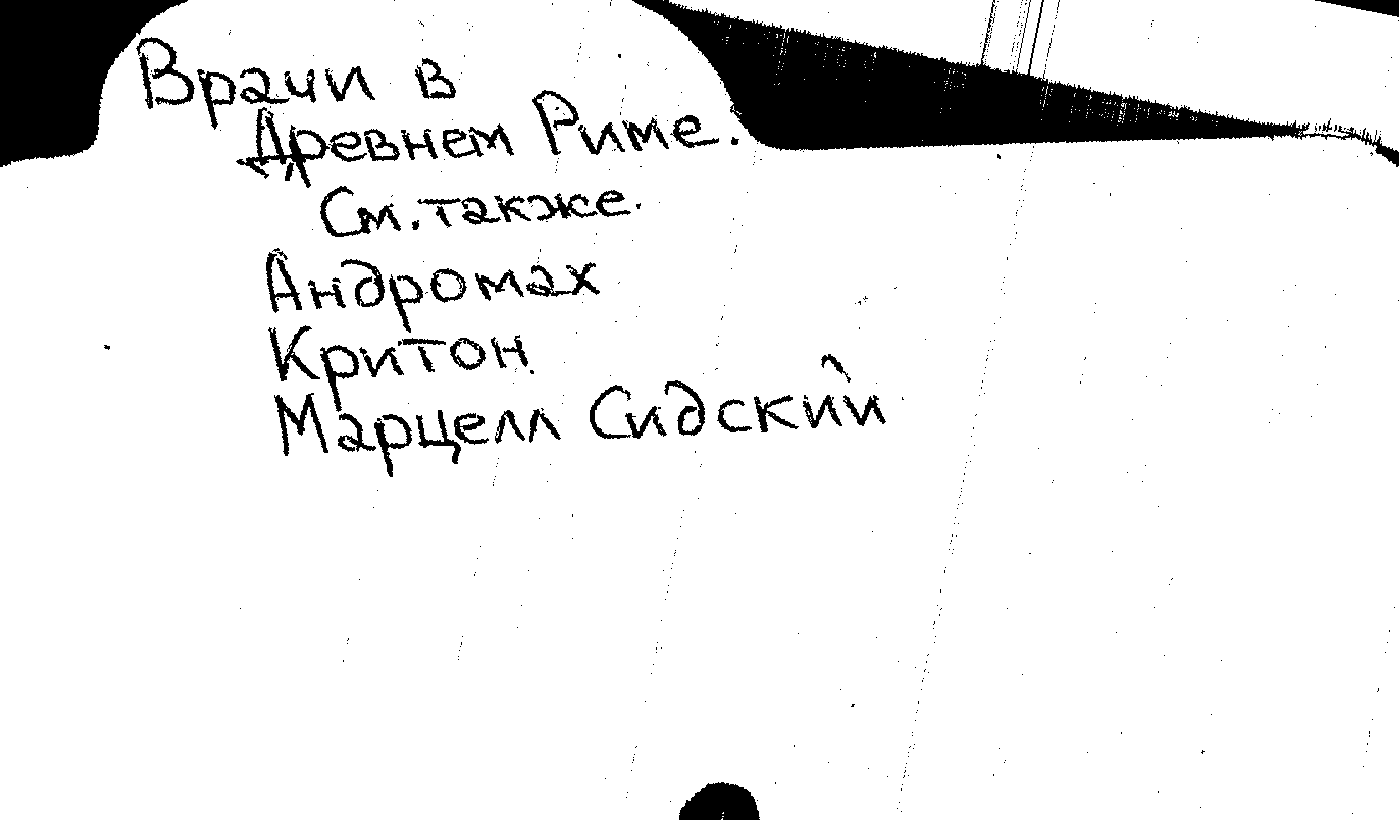 Врачи в
Древнем Риме.
См. также.
Андромах
Критон
Марцелл Сидский